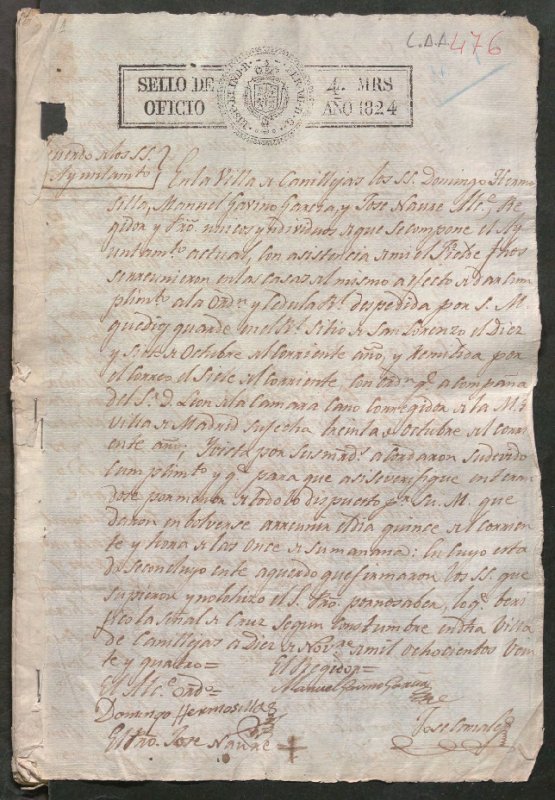 C.A.A. 476
SELLO DE OFICIO
4. MRS AÑO 1824
uerdo de los SS.
Ayuntamto
En la Villa de Canillejas los SS. Domingo Hermo
silla, Manuel Gavino Garcia, y Jose Nauae Alce, Re
gidor y Pro. unicos yndividuos de que se compone el Ay
untamto actual, con asistencia de mi el Fiel de fhos
se reunieron en las casas del mismo a efecto de dar cum
plimto a la Ordn y Cedula Rl. despedida por S. M.
que dios guarde en el Rl. Sitio de San Lorenzo el Diez
y Siete de Octubre del corriente año, y remitida por
el correo el Siete del corriente, con Ordn qe acompaña
del Sr. D. Leon de la Camara Cano Corregidor de la M. H.
Villa de Madrid su fecha treinta de Octubre del corri
ente año; Y vista por sus mrds acordaron su devido
cumplimto y qe para que asi se verifique enteran
dose por menor de todo lo dispuesto pr Su M. que
daron en bolverse a reunir el dia quince del corrien
te y hora de las once de su mañana: En cuyo esta
do se concluyo este acuerdo que firmaron los SS. que
supieron y no lo hizo el S. Pro. por no saber, lo qe. beri
fico la señal de Cruz segun costumbre en dha Villa
de Canillejas a diez de Novre de mil ochocientos vein
te y quatro=
El Regidor=
El Alce Ordo
Manuel Gavino Garcia
Domingo Hermosilla
Jose
El Pro. Jose Nauae +